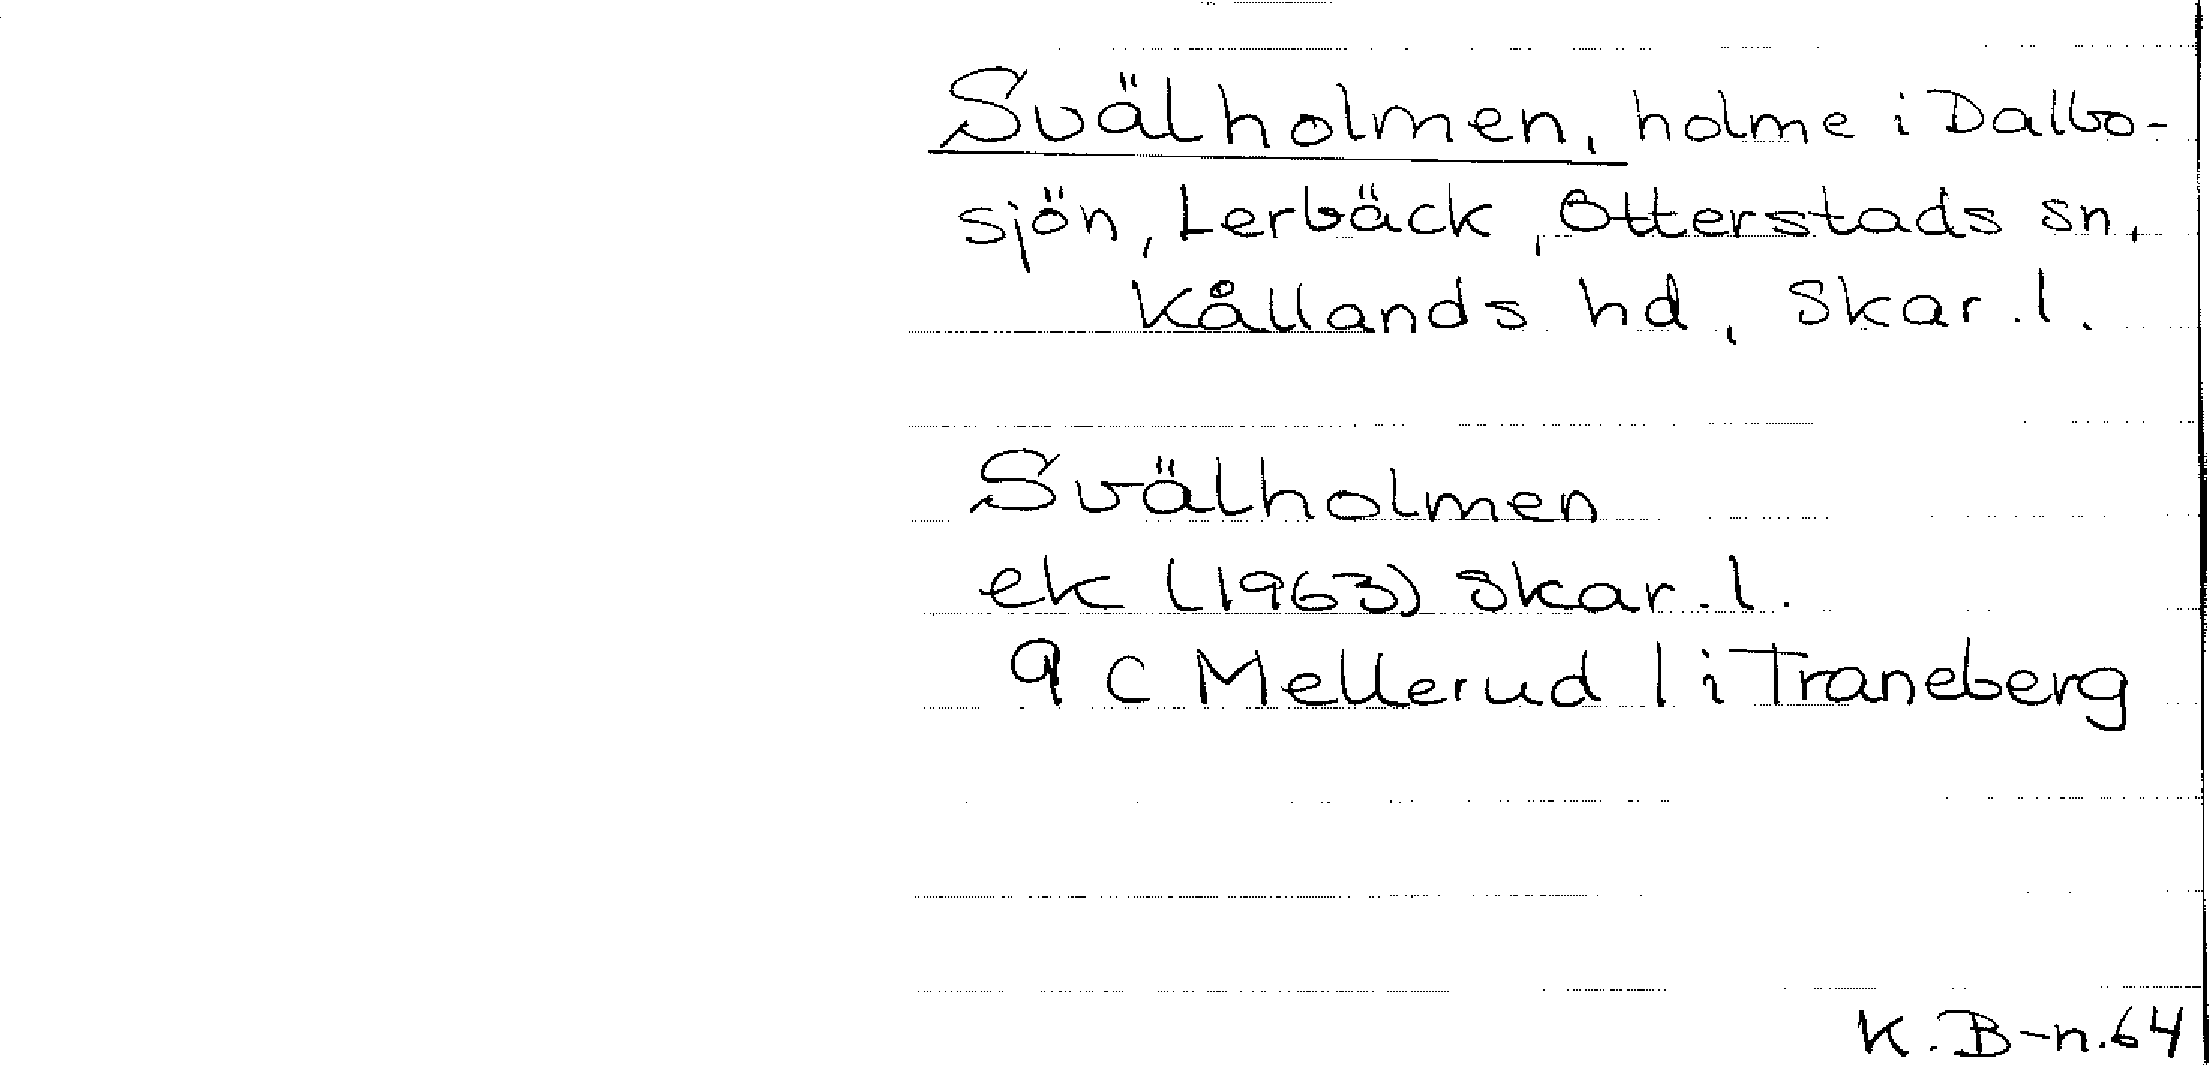 Svälholmen, holme i Dalbo-
sjön, Lerbäck, Otterstads sn,
Kållands hd, Skar. l.
Svälholmen
ek (1963) Skar. l.
9 C Mellerud l i Traneberg
K. B-n. 64